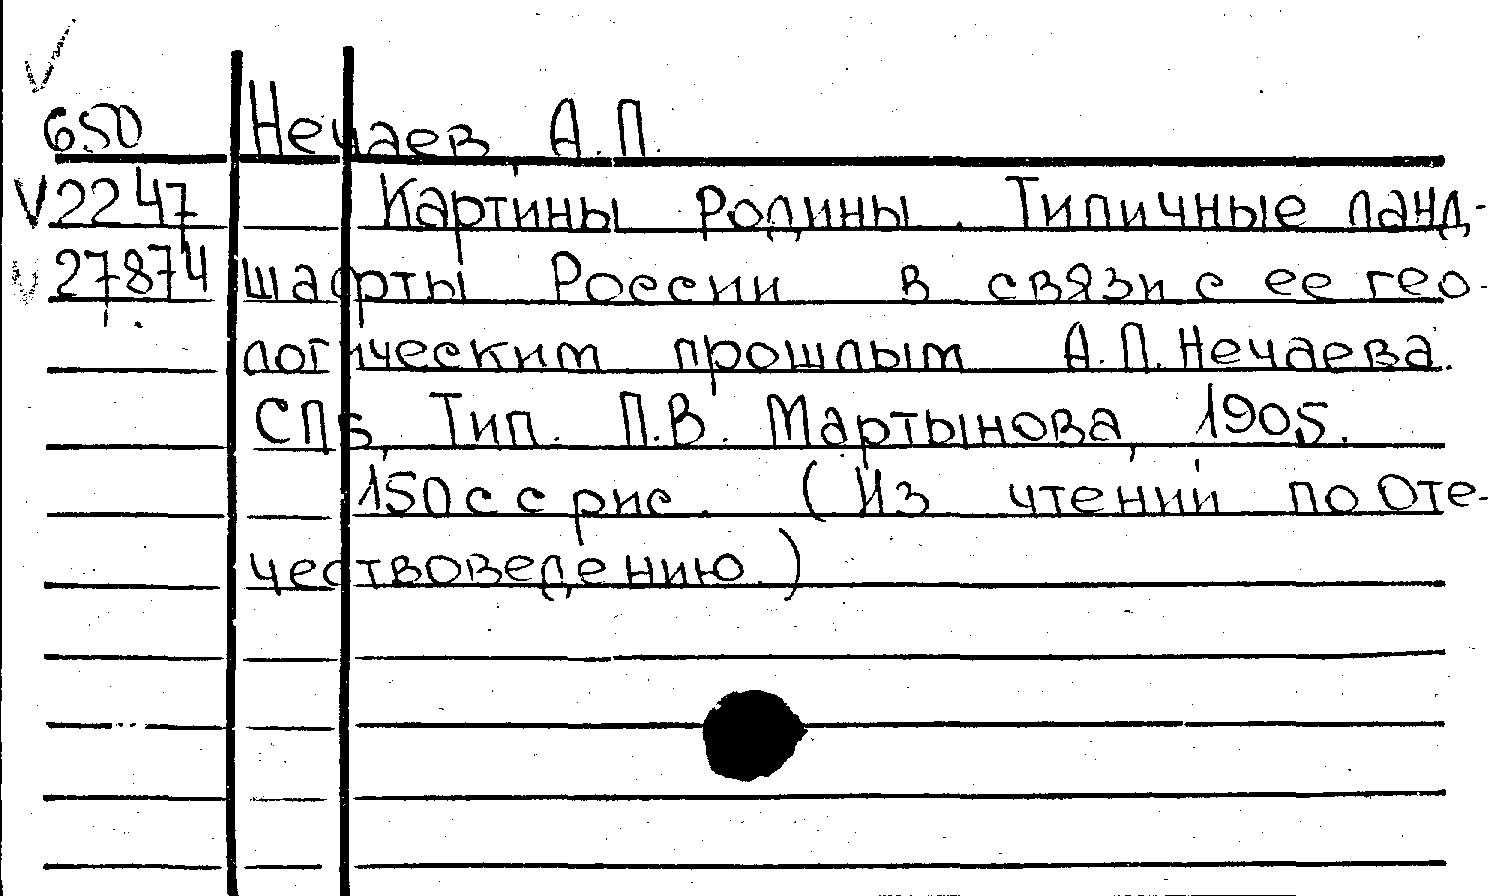 650 Нечаев, А.П.
V2247 Картины Родины. Типичные ланд-
27874 шафты России в связи с ее гео-
логическим прошлым А.П. Нечаева.
СПБ, Тип. П.В. Мартынова, 1905.
150 с с рис. (Из чтений по Оте-
чествоведению.)